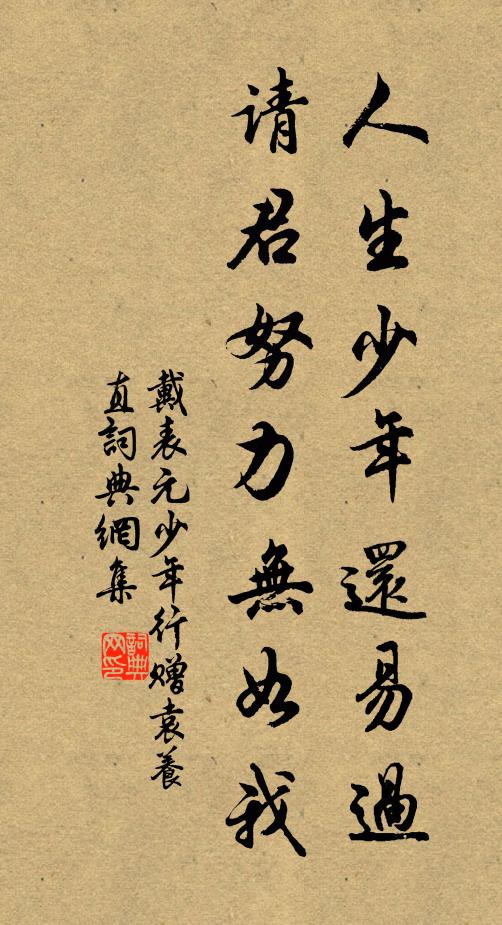 人生少年還易過
请君努力無如我
戴表元少年行赠袁養
直詞典網集
詞典网印